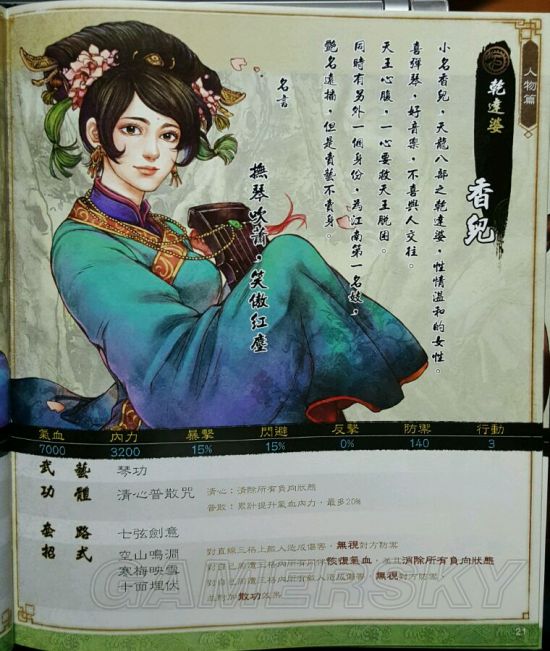 人物篇
乾達婆
香兒
小名香兒，天龍八部之乾達婆，性情溫和的女性。
喜彈琴，好音樂，不喜與人交往。
天王心腹，一心要救天王脫困。
同時有另外一個身份，為江南第一名妓，
艷名遠播，但是賣藝不賣身。
名言
撫琴吹簫，笑傲紅塵
氣血 內力 暴擊 閃避 反擊 防禦 行動
7000 3200 15% 15% 0% 140 3
武藝 琴功
功體 清心普散咒 清心：消除所有負向狀態
普散：累計提升氣血內力，最多20%
套路 七弦劍意
招式 空山鳴澗 對直線三格上敵人造成傷害，無視對方防禦
寒梅映雪 對自己周遭三格內所有同伴恢復氣血，並且消除所有負向狀態
十面埋伏 對自己周遭三格內所有敵人造成傷害，無視對方防禦，
並附加散功效果
GAMERSKY
21